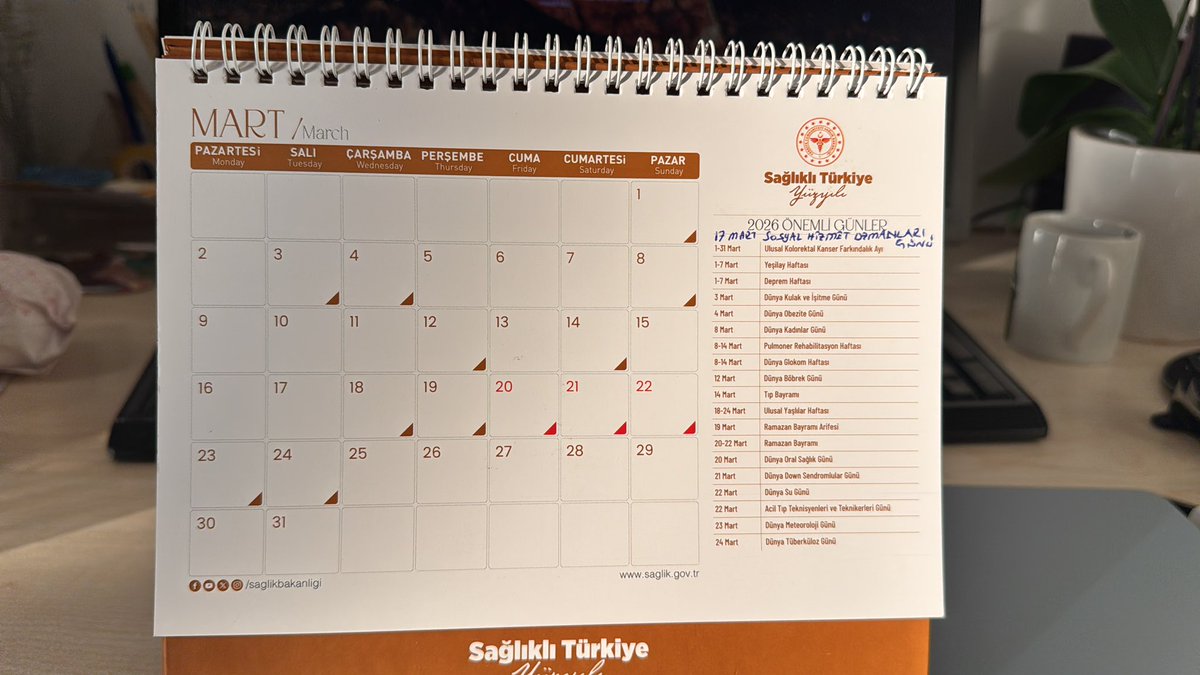 MART / March
PAZARTESİ SALI ÇARŞAMBA PERŞEMBE CUMA CUMARTESİ PAZAR
Monday Tuesday Wednesday Thursday Friday Saturday Sunday
1
2 3 4 5 6 7 8
9 10 11 12 13 14 15
16 17 18 19 20 21 22
23 24 25 26 27 28 29
30 31
/saglikbakanligi
www.saglik.gov.tr
Sağlıklı Türkiye
Yüzyılı
2026 ÖNEMLİ GÜNLER
17 MART SOSYAL HİZMET UZMANLARI
GÜNÜ
1-31 Mart Ulusal Kolorektal Kanser Farkındalık Ayı
1-7 Mart Yeşilay Haftası
1-7 Mart Deprem Haftası
3 Mart Dünya Kulak ve İşitme Günü
4 Mart Dünya Obezite Günü
8 Mart Dünya Kadınlar Günü
8-14 Mart Pulmoner Rehabilitasyon Haftası
8-14 Mart Dünya Glokom Haftası
12 Mart Dünya Böbrek Günü
14 Mart Tıp Bayramı
18-24 Mart Ulusal Yaşlılar Haftası
19 Mart Ramazan Bayramı Arifesi
20-22 Mart Ramazan Bayramı
20 Mart Dünya Oral Sağlık Günü
21 Mart Dünya Down Sendromlular Günü
22 Mart Dünya Su Günü
22 Mart Acil Tıp Teknisyenleri ve Teknikerleri Günü
23 Mart Dünya Meteoroloji Günü
24 Mart Dünya Tüberküloz Günü
Sağlıklı Türkiye
Yüzyılı